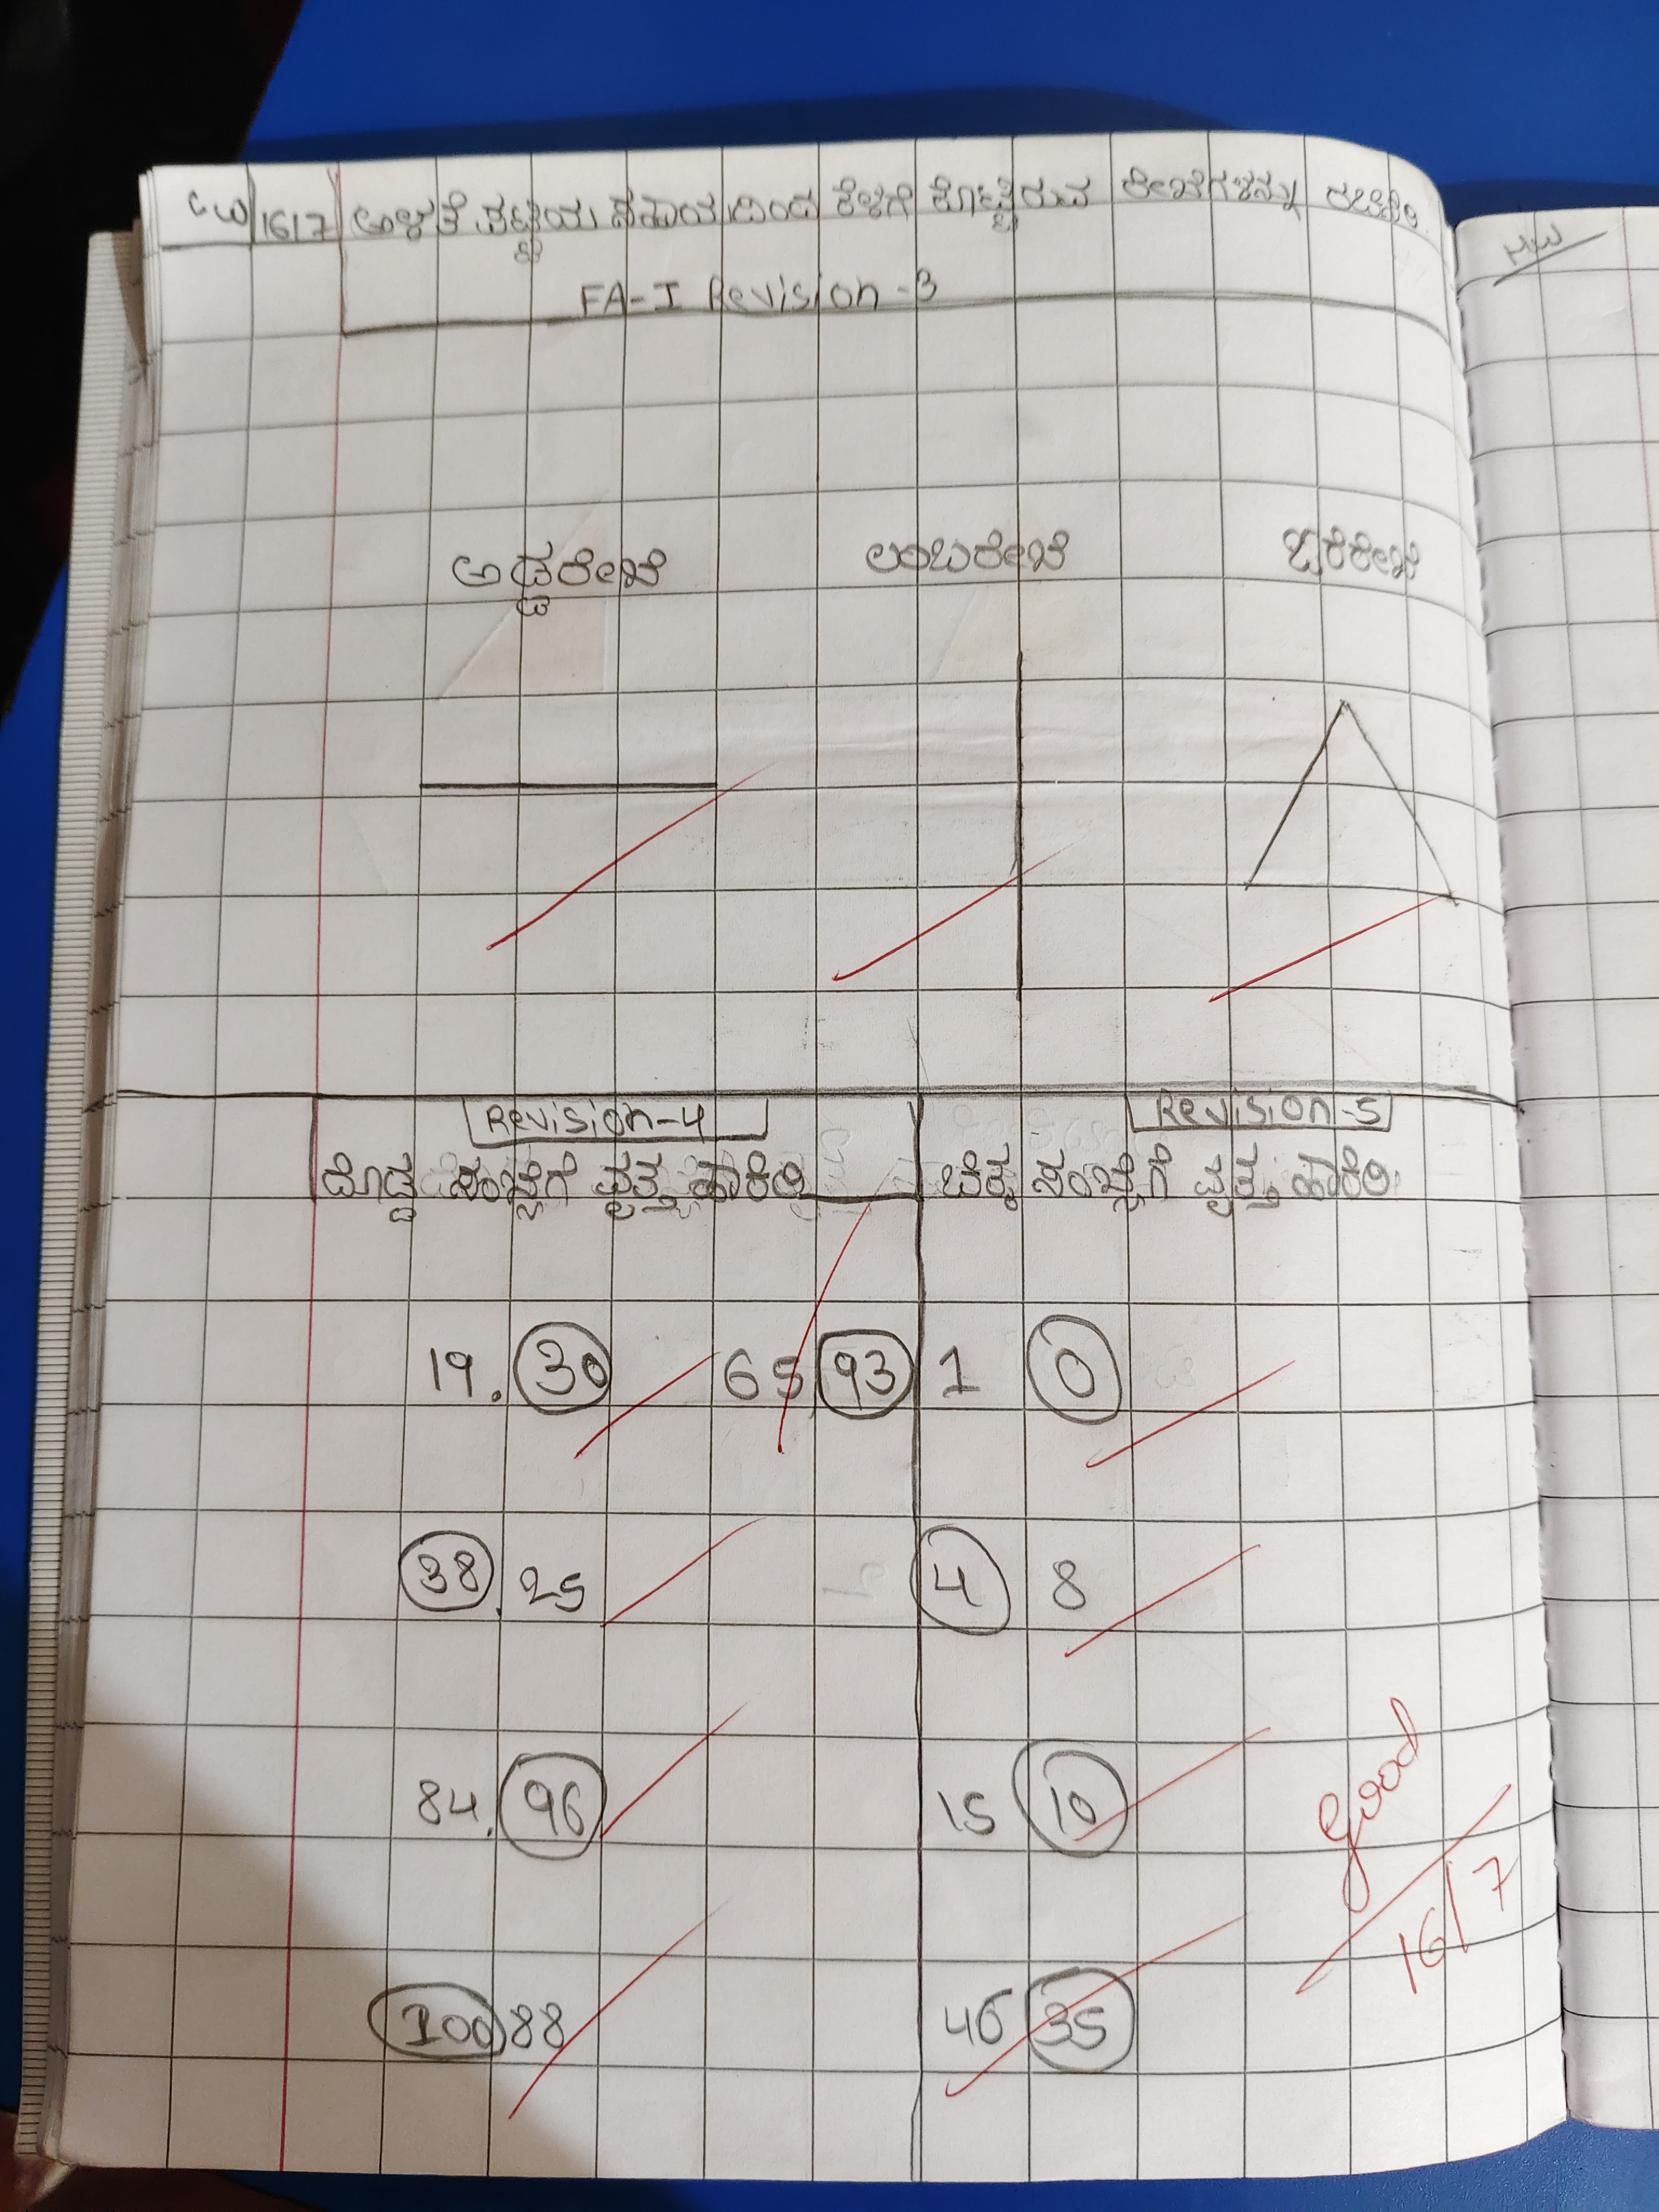 CW 16/7 ಅಳತೆ ಪಟ್ಟಿಯ ಸಹಾಯದಿಂದ ಕೆಳಗೆ ಕೊಟ್ಟಿರುವ ರೇಖೆಗಳನ್ನು ರಚಿಸಿರಿ.
FA-I Revision-3
ಅಡ್ಡರೇಖೆ ಲಂಬರೇಖೆ ಓರೆರೇಖೆ
Revision-4
ದೊಡ್ಡ ಸಂಖ್ಯೆಗೆ ವೃತ್ತ ಹಾಕಿರಿ
19. 30 65 93
38. 25
84. 96
100 88
Revision-5
ಚಿಕ್ಕ ಸಂಖ್ಯೆಗೆ ವೃತ್ತ ಹಾಕಿರಿ
1 0
4 8
15 10
46 35
Good
16/7
HW